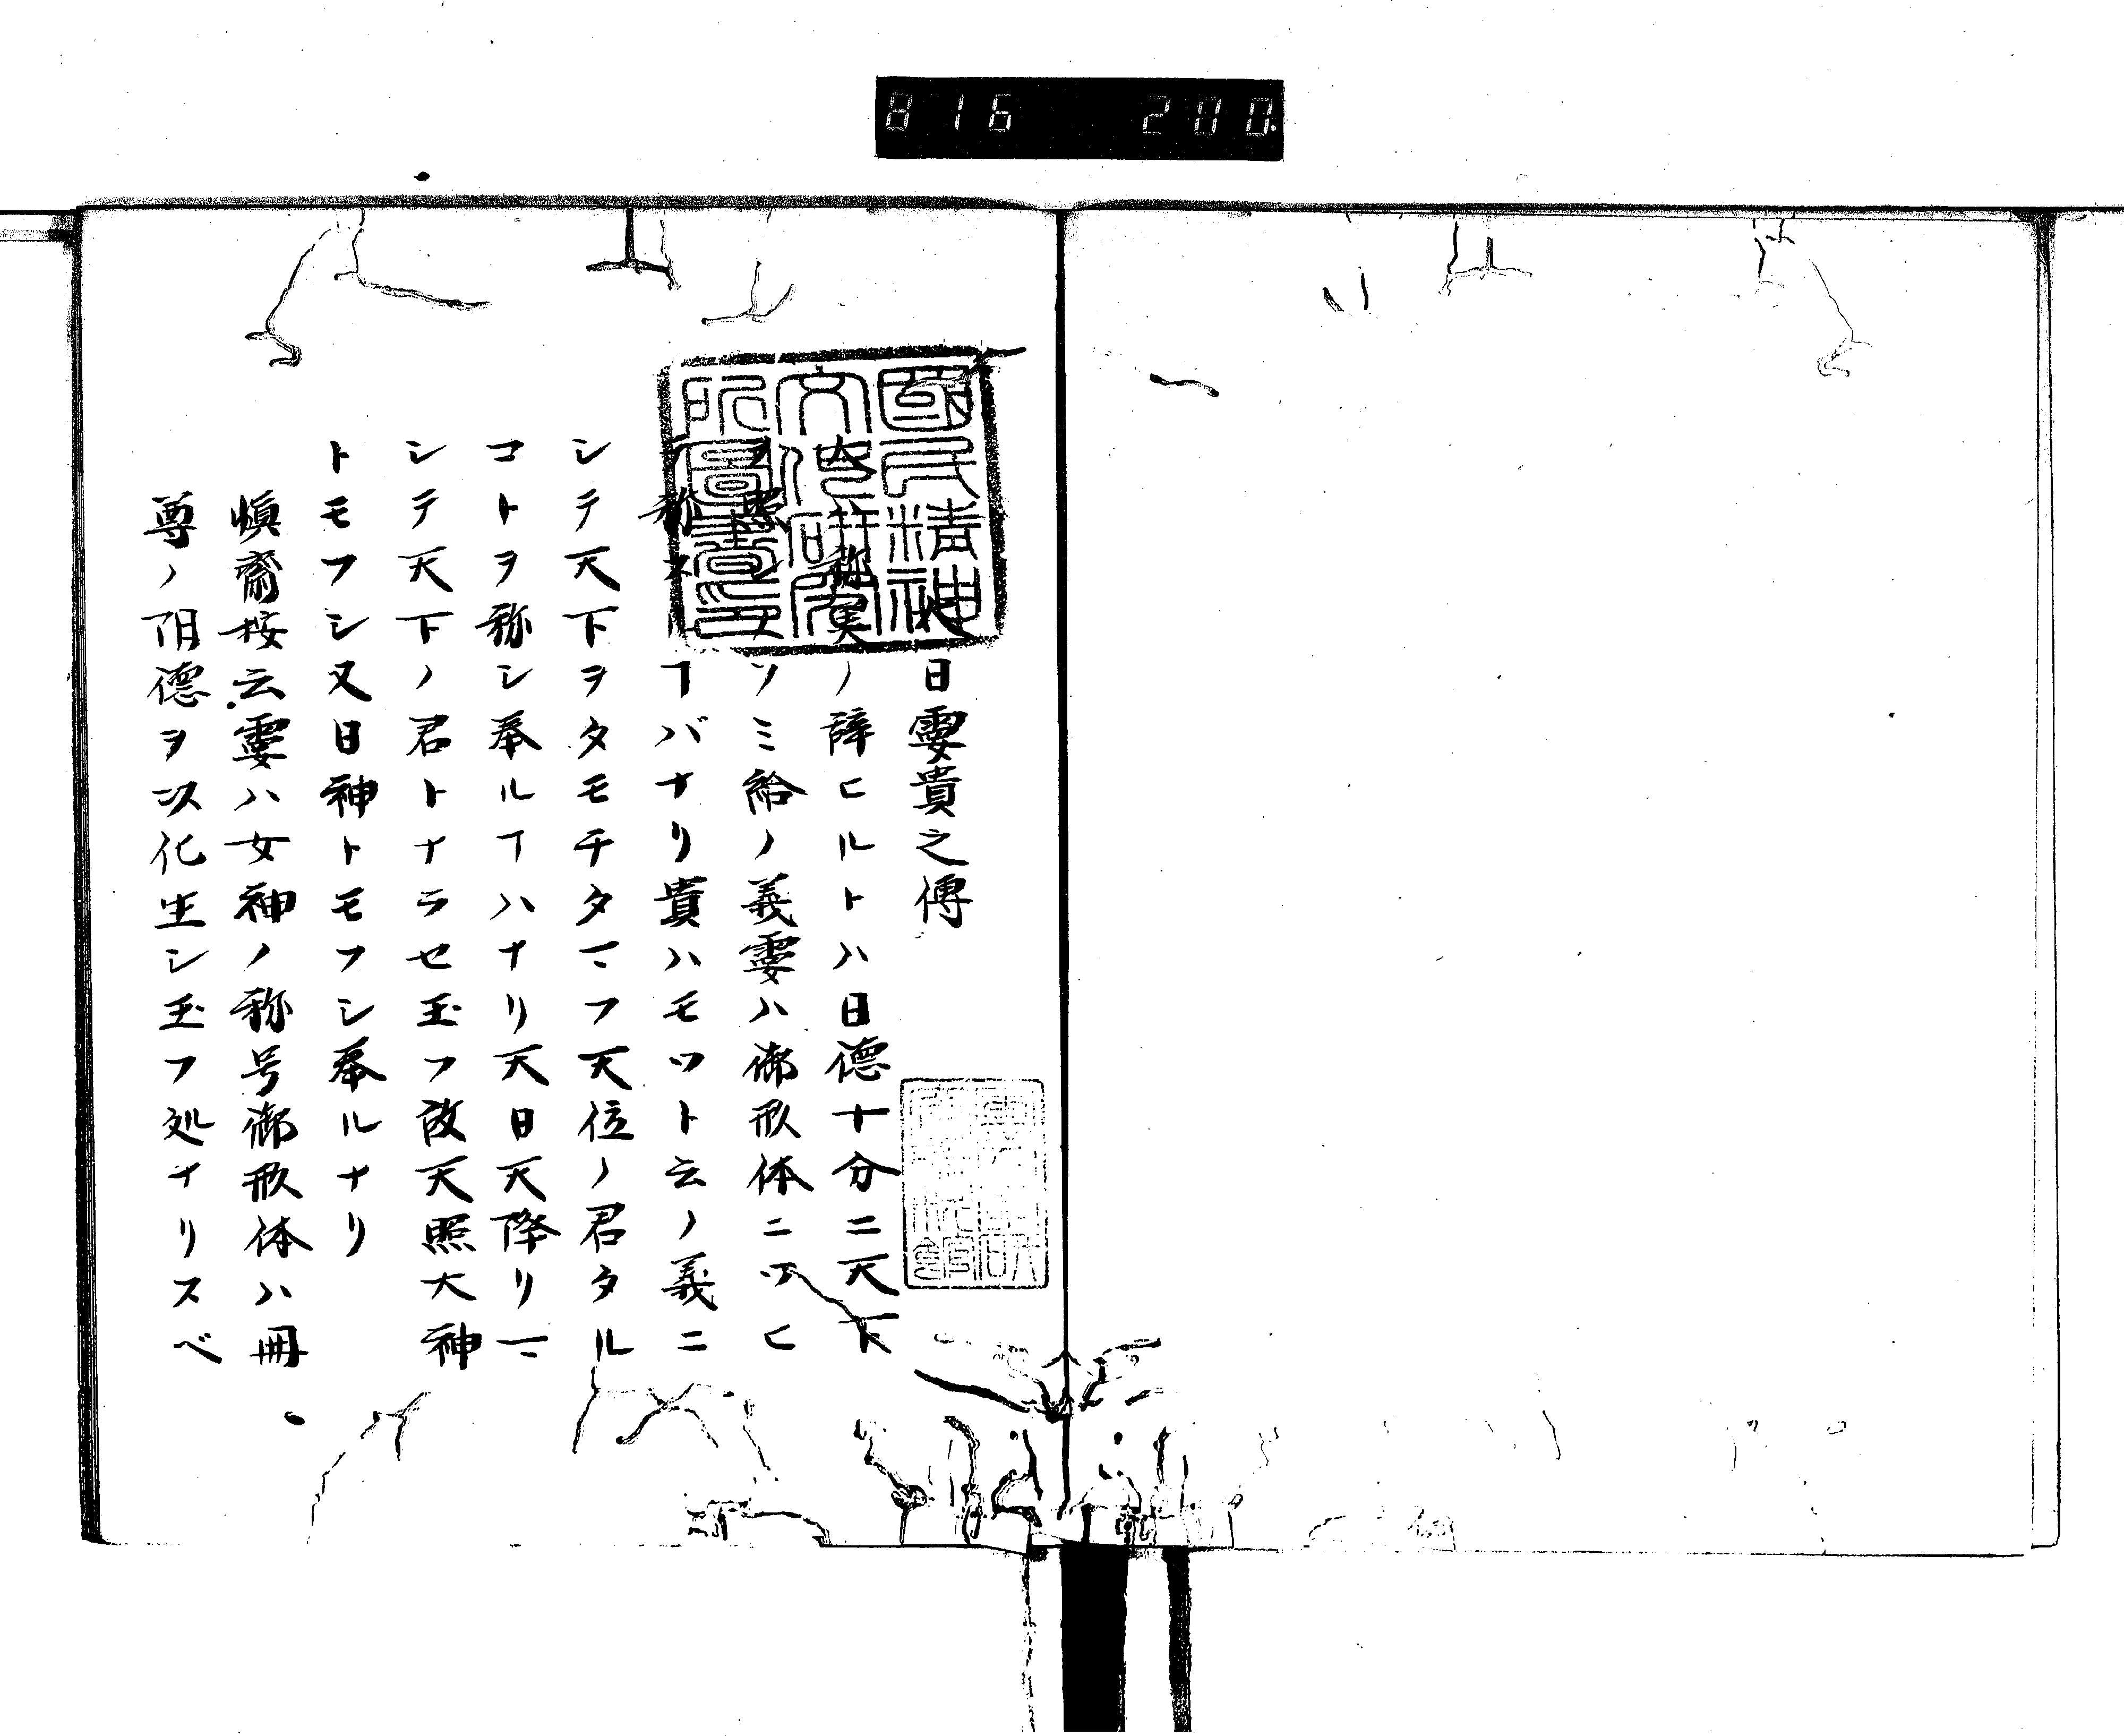 816 200.
國民精神
文化研究
所圖書印
日孁貴之傳
称美ノ辞ヒルトハ日德十分ニ天下
照シソミ給ノ義孁ハ御形体ニツヒ
称スルヿバナリ貴ハモツト云ノ義ニ
シテ天下ヲタモチタマフ天位ノ君タル
コトヲ称シ奉ルヿハナリ天日天降リマ
シテ天下ノ君トナラセ玉フ故天照大神
トモフシ又日神トモフシ奉ルナリ
慎齋按云孁ハ女神ノ称号御形体ハ冊
尊ノ阴德ヲ以化生シ玉フ処ナリスベ